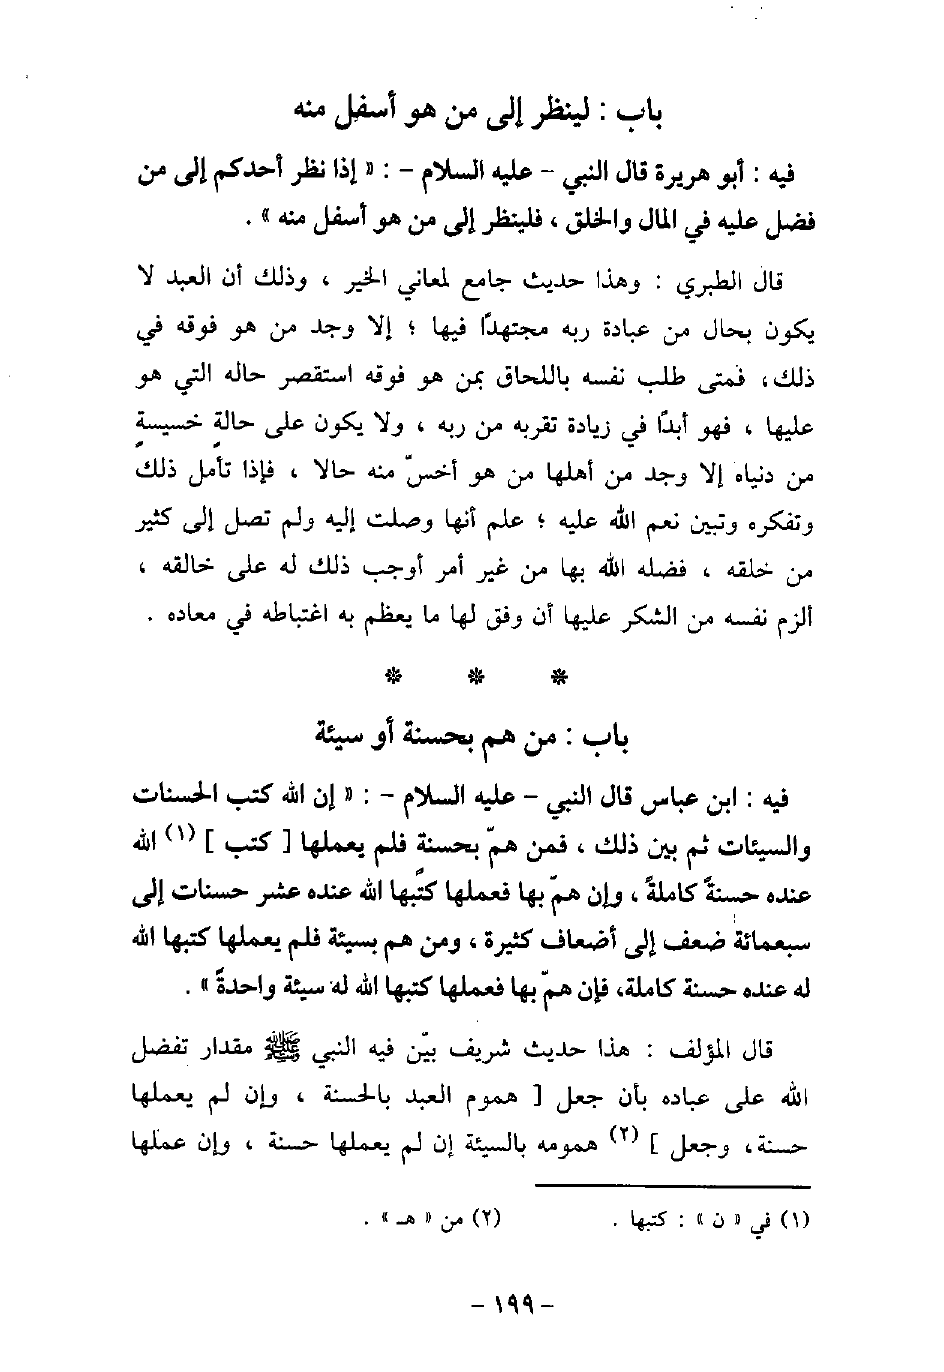 باب : لينظر إلى من هو أسفل منه
فيه : أبو هريرة قال النبي - عليه السلام - : « إذا نظر أحدكم إلى من
فضل عليه في المال والخلق ، فلينظر إلى من هو أسفل منه » .
قال الطبري : وهذا حديث جامع لمعاني الخير ، وذلك أن العبد لا
يكون بحال من عبادة ربه مجتهدًا فيها ؛ إلا وجد من هو فوقه في
ذلك، فمتى طلب نفسه باللحاق بمن هو فوقه استقصر حاله التي هو
عليها ، فهو أبدًا في زيادة تقربه من ربه ، ولا يكون على حالةٍ خسيسةٍ
من دنياه إلا وجد من أهلها من هو أخسّ منه حالا ، فإذا تأمل ذلك
وتفكره وتبين نعم الله عليه ؛ علم أنها وصلت إليه ولم تصل إلى كثير
من خلقه ، فضله الله بها من غير أمر أوجب ذلك له على خالقه ،
ألزم نفسه من الشكر عليها أن وفق لها ما يعظم به اغتباطه في معاده .
* * *
باب : من هم بحسنة أو سيئة
فيه : ابن عباس قال النبي - عليه السلام - : « إن الله كتب الحسنات
والسيئات ثم بين ذلك ، فمن همّ بحسنة فلم يعملها [ كتب ] (١) الله
عنده حسنةً كاملةً ، وإن همّ بها فعملها كتبها الله عنده عشر حسنات إلى
سبعمائة ضعف إلى أضعاف كثيرة ، ومن هم بسيئة فلم يعملها كتبها الله
له عنده حسنة كاملة، فإن همّ بها فعملها كتبها الله له سيئة واحدةً » .
قال المؤلف : هذا حديث شريف بيّن فيه النبي ﷺ مقدار تفضل
الله على عباده بأن جعل [ هموم العبد بالحسنة ، وإن لم يعملها
حسنة، وجعل ] (٢) همومه بالسيئة إن لم يعملها حسنة ، وإن عملها
(١) في « ن » : كتبها . (٢) من « هـ » .
- ١٩٩ -